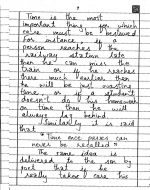 Time is the most
important thing for which
value must be bestowed
for instance if a
person reaches the
railway station late
then he can miss the
train or if he reaches
there much earlier then
he will be just wasting
time or if a student
doesn't do his homework
on time then he will
always lag behind.
Similarly it is said
that
"Time once passes can
never be recalled"
The same idea is
delivered to the son by
poet that is he
really takes care his